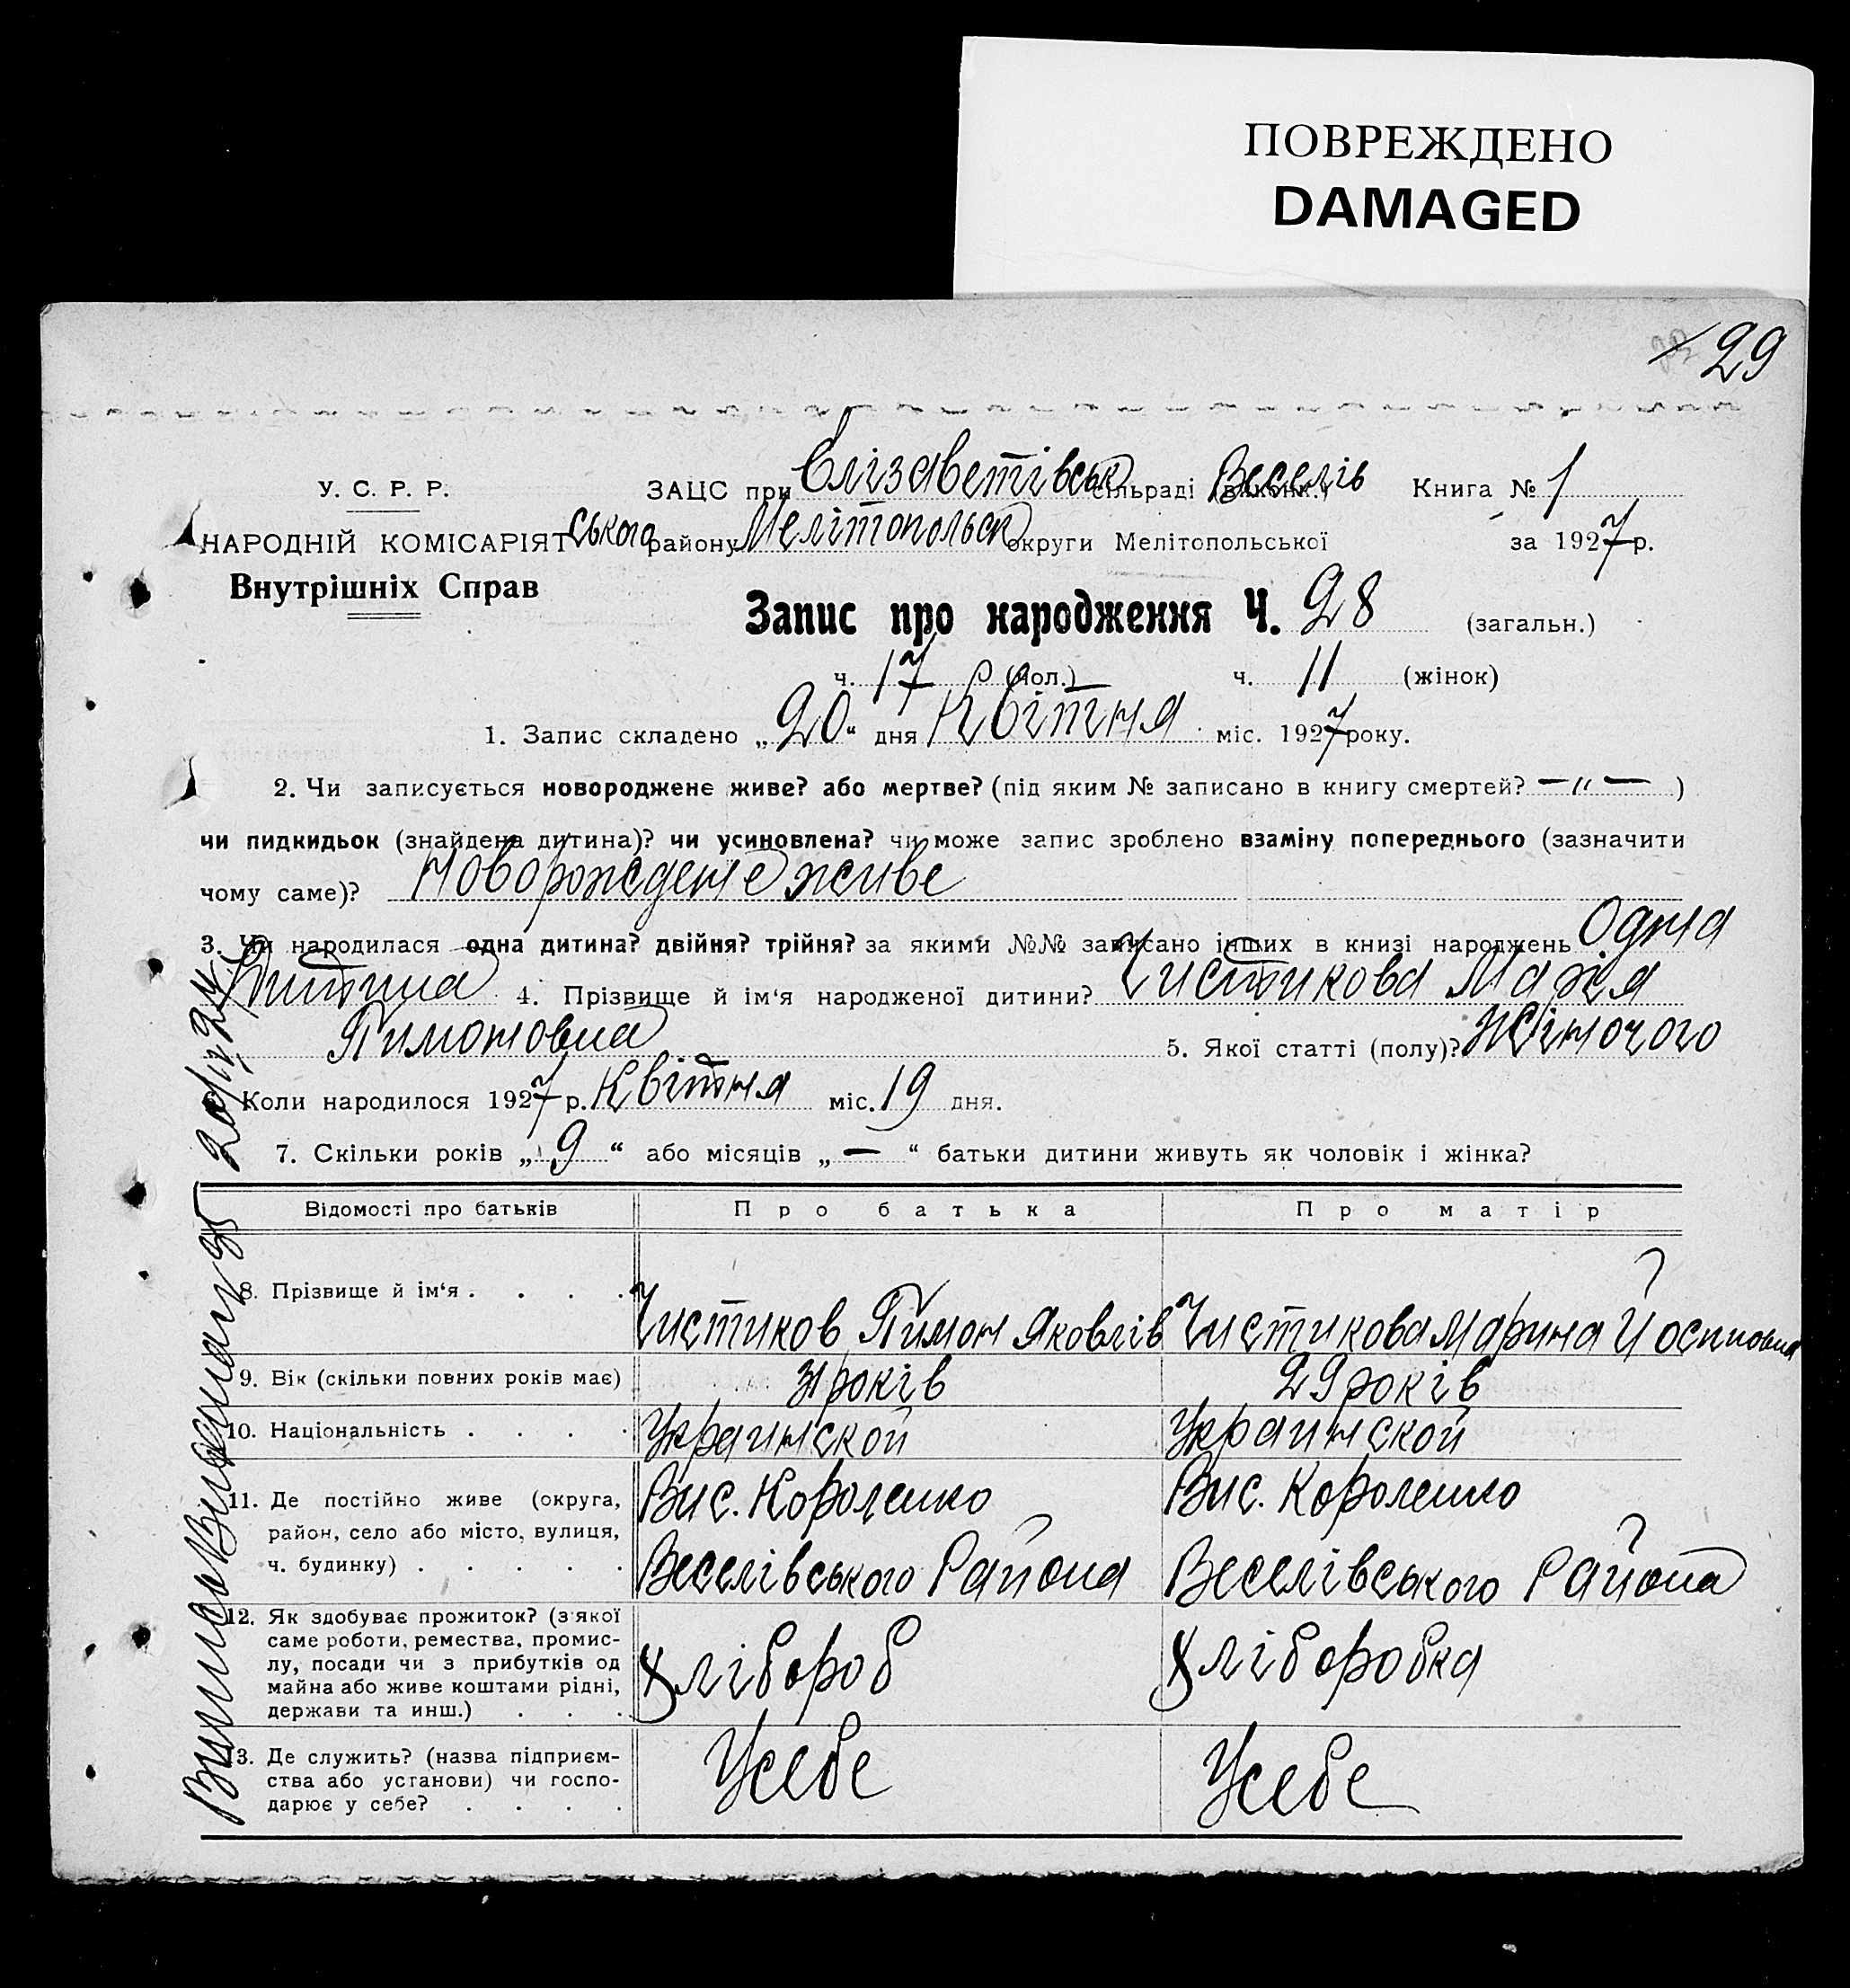 ПОВРЕЖДЕНО
DAMAGED
29
У. С. Р. Р.
НАРОДНІЙ КОМІСАРІЯТ
Внутрішніх Справ
ЗАЦС при Єлізаветівськ сільраді (виконк.) Веселів Книга № 1
ського району Мелітопольськ округи Мелітопольської за 1927 р.
Запис про народження Ч. 28 (загальн.)
ч. 17 (чол.) ч. 11 (жінок)
1. Запис складено „20“ дня Квітня міс. 1927 року.
2. Чи записується новороджене живе? або мертве? (під яким № записано в книгу смертей? —„— )
чи пидкидьок (знайдена дитина)? чи усиновлена? чи може запис зроблено взаміну попереднього (зазначити
чому саме)? Новорождене живе
3. Чи народилася одна дитина? двійня? трійня? за якими №№ записано інших в книзі народжень Одна
Дитина 4. Прізвище й ім‘я народженої дитини? Чистикова Марія
Тимоновна 5. Якої статті (полу)? Жіночого
6. Коли народилося 1927 р. Квітня міс. 19 дня.
7. Скільки років „9“ або місяців „—“ батьки дитини живуть як чоловік і жінка?
Відомості про батьків Про батька Про матір
8. Прізвище й ім‘я . . . . Чистиков Тимон Яковлів Чистикова Марина Йосиповна
9. Вік (скільки повних років має) 31 років 29 років
10. Національність . . . . Украинской Украинской
11. Де постійно живе (округа,
район, село або місто, вулиця,
ч. будинку) . . . . .
Вис. Короленко
Веселівського Района
Вис. Короленко
Веселівського Района
12. Як здобуває прожиток? (з якої
саме роботи, ремества, промис-
лу, посади чи з прибутків од
майна або живе коштами рідні,
держави та инш.) . . .
Хлібороб
Хліборобка
13. Де служить? (назва підприєм-
ства або установи) чи госпо-
дарює у себе? . . . .
Усебе
Усебе